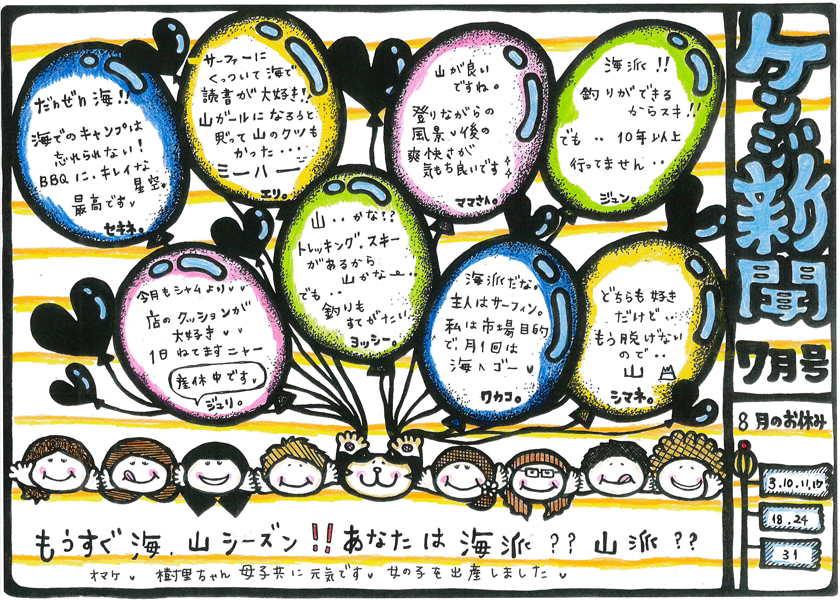 ケンジ新聞
7月号
8月のお休み
3.10.11.17
18.24
31
だんぜん海!!
海でのキャンプは
忘れられない!
BBQに、キレイな
星空。
最高です♥
セキネ。
サーファーに
くっついて海で
読書が大好き!!
山ガールになろうと
思って山のクツも
かった・・・
ミーハー
エリ。
山が良い
ですね。
登りながらの
風景♥後の
爽快さが
気もち良いです
ママさん。
海派!!
釣りができる
からスキ!!
でも・・10年以上
行ってません・・
ジュン。
今月もシャムより♥♥
店のクッションが
大好き♥♥
1日ねてますニャー
産休中です♥
ジュリ。
山・・かな!?
トレッキング、スキー
があるから
山かなー・・
でも・・
釣りも
すてがたい
ヨッシー。
海派だな。
主人はサーフィン。
私は市場目的
で、月1回は
海へゴー♥
ワカコ。
どちらも好き
だけど・・
もう脱げない
ので・・
山
シマネ。
もうすぐ海、山シーズン!!あなたは海派??山派??
オマケ♥樹里ちゃん母子共に元気です♥女の子を出産しました♥